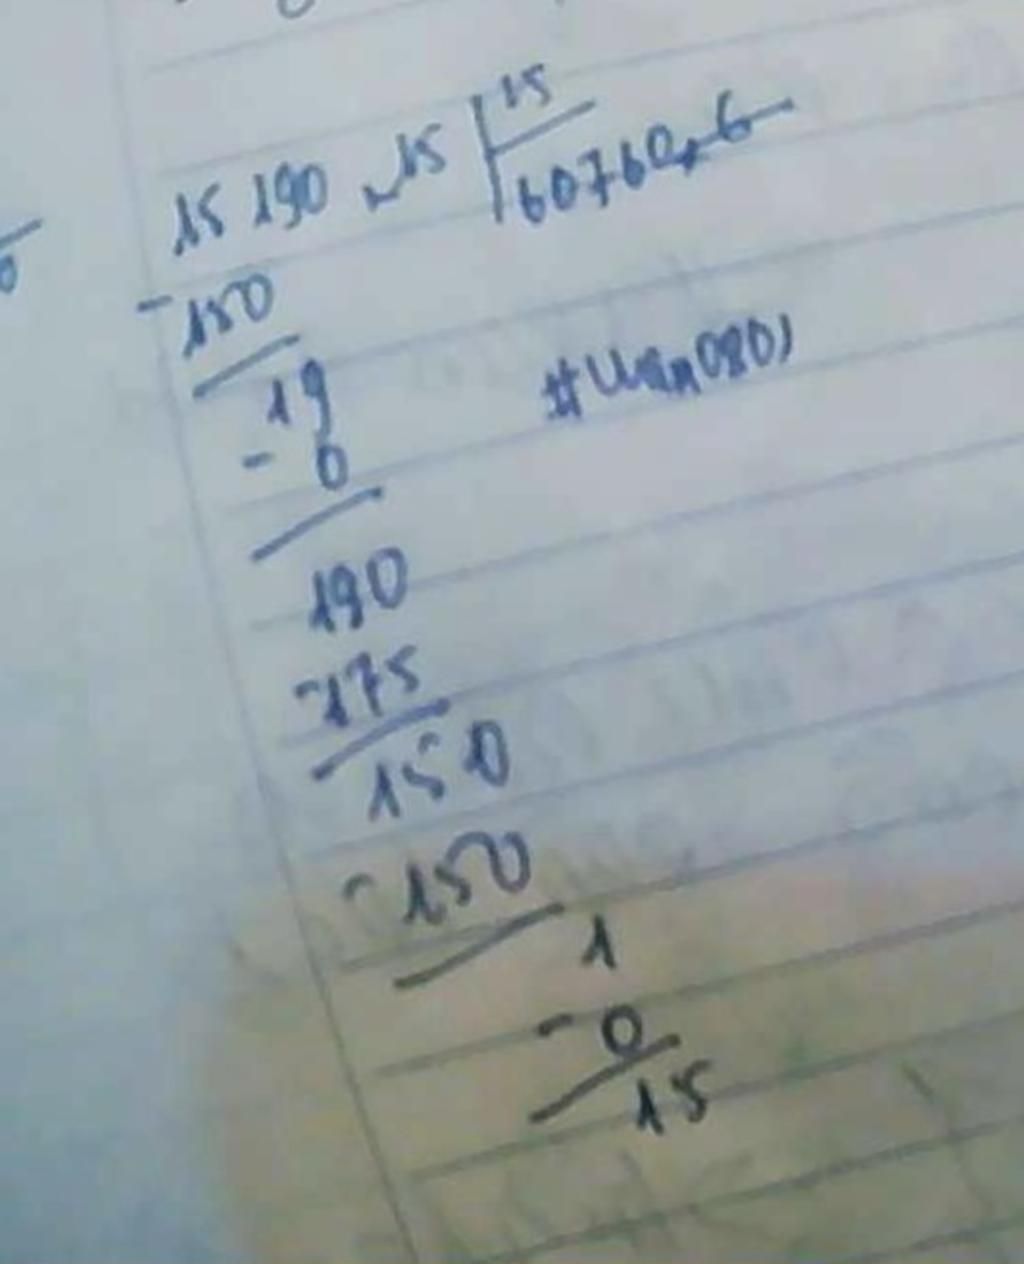 15 190 ,15 | 15
60760,6
- 150
19
- 0
190
- 175
150
- 150
1
- 0
15